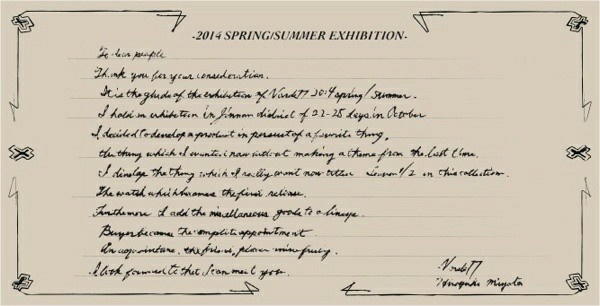 -2014 SPRING/SUMMER EXHIBITION-
To dear people
Thank you for your consideration.
It is the guide of the exhibition of Varde77 2014 spring/summer.
I hold an exhibition in Jinnan district of 22-25 days in October
I decided to develop a product in persuet of a favorite thing.
the thing which I want now without making a theme from the last time.
I develop the thing which I really want now titled 1/2 in this collection.
The watch which becomes the first release.
Furthermore I add the miscellaneous goods to a lineup.
Buyer became the complete appointment
An appointment, the please
I look forward to that I can meet you.
Varde77
Hiroyuki Miyata